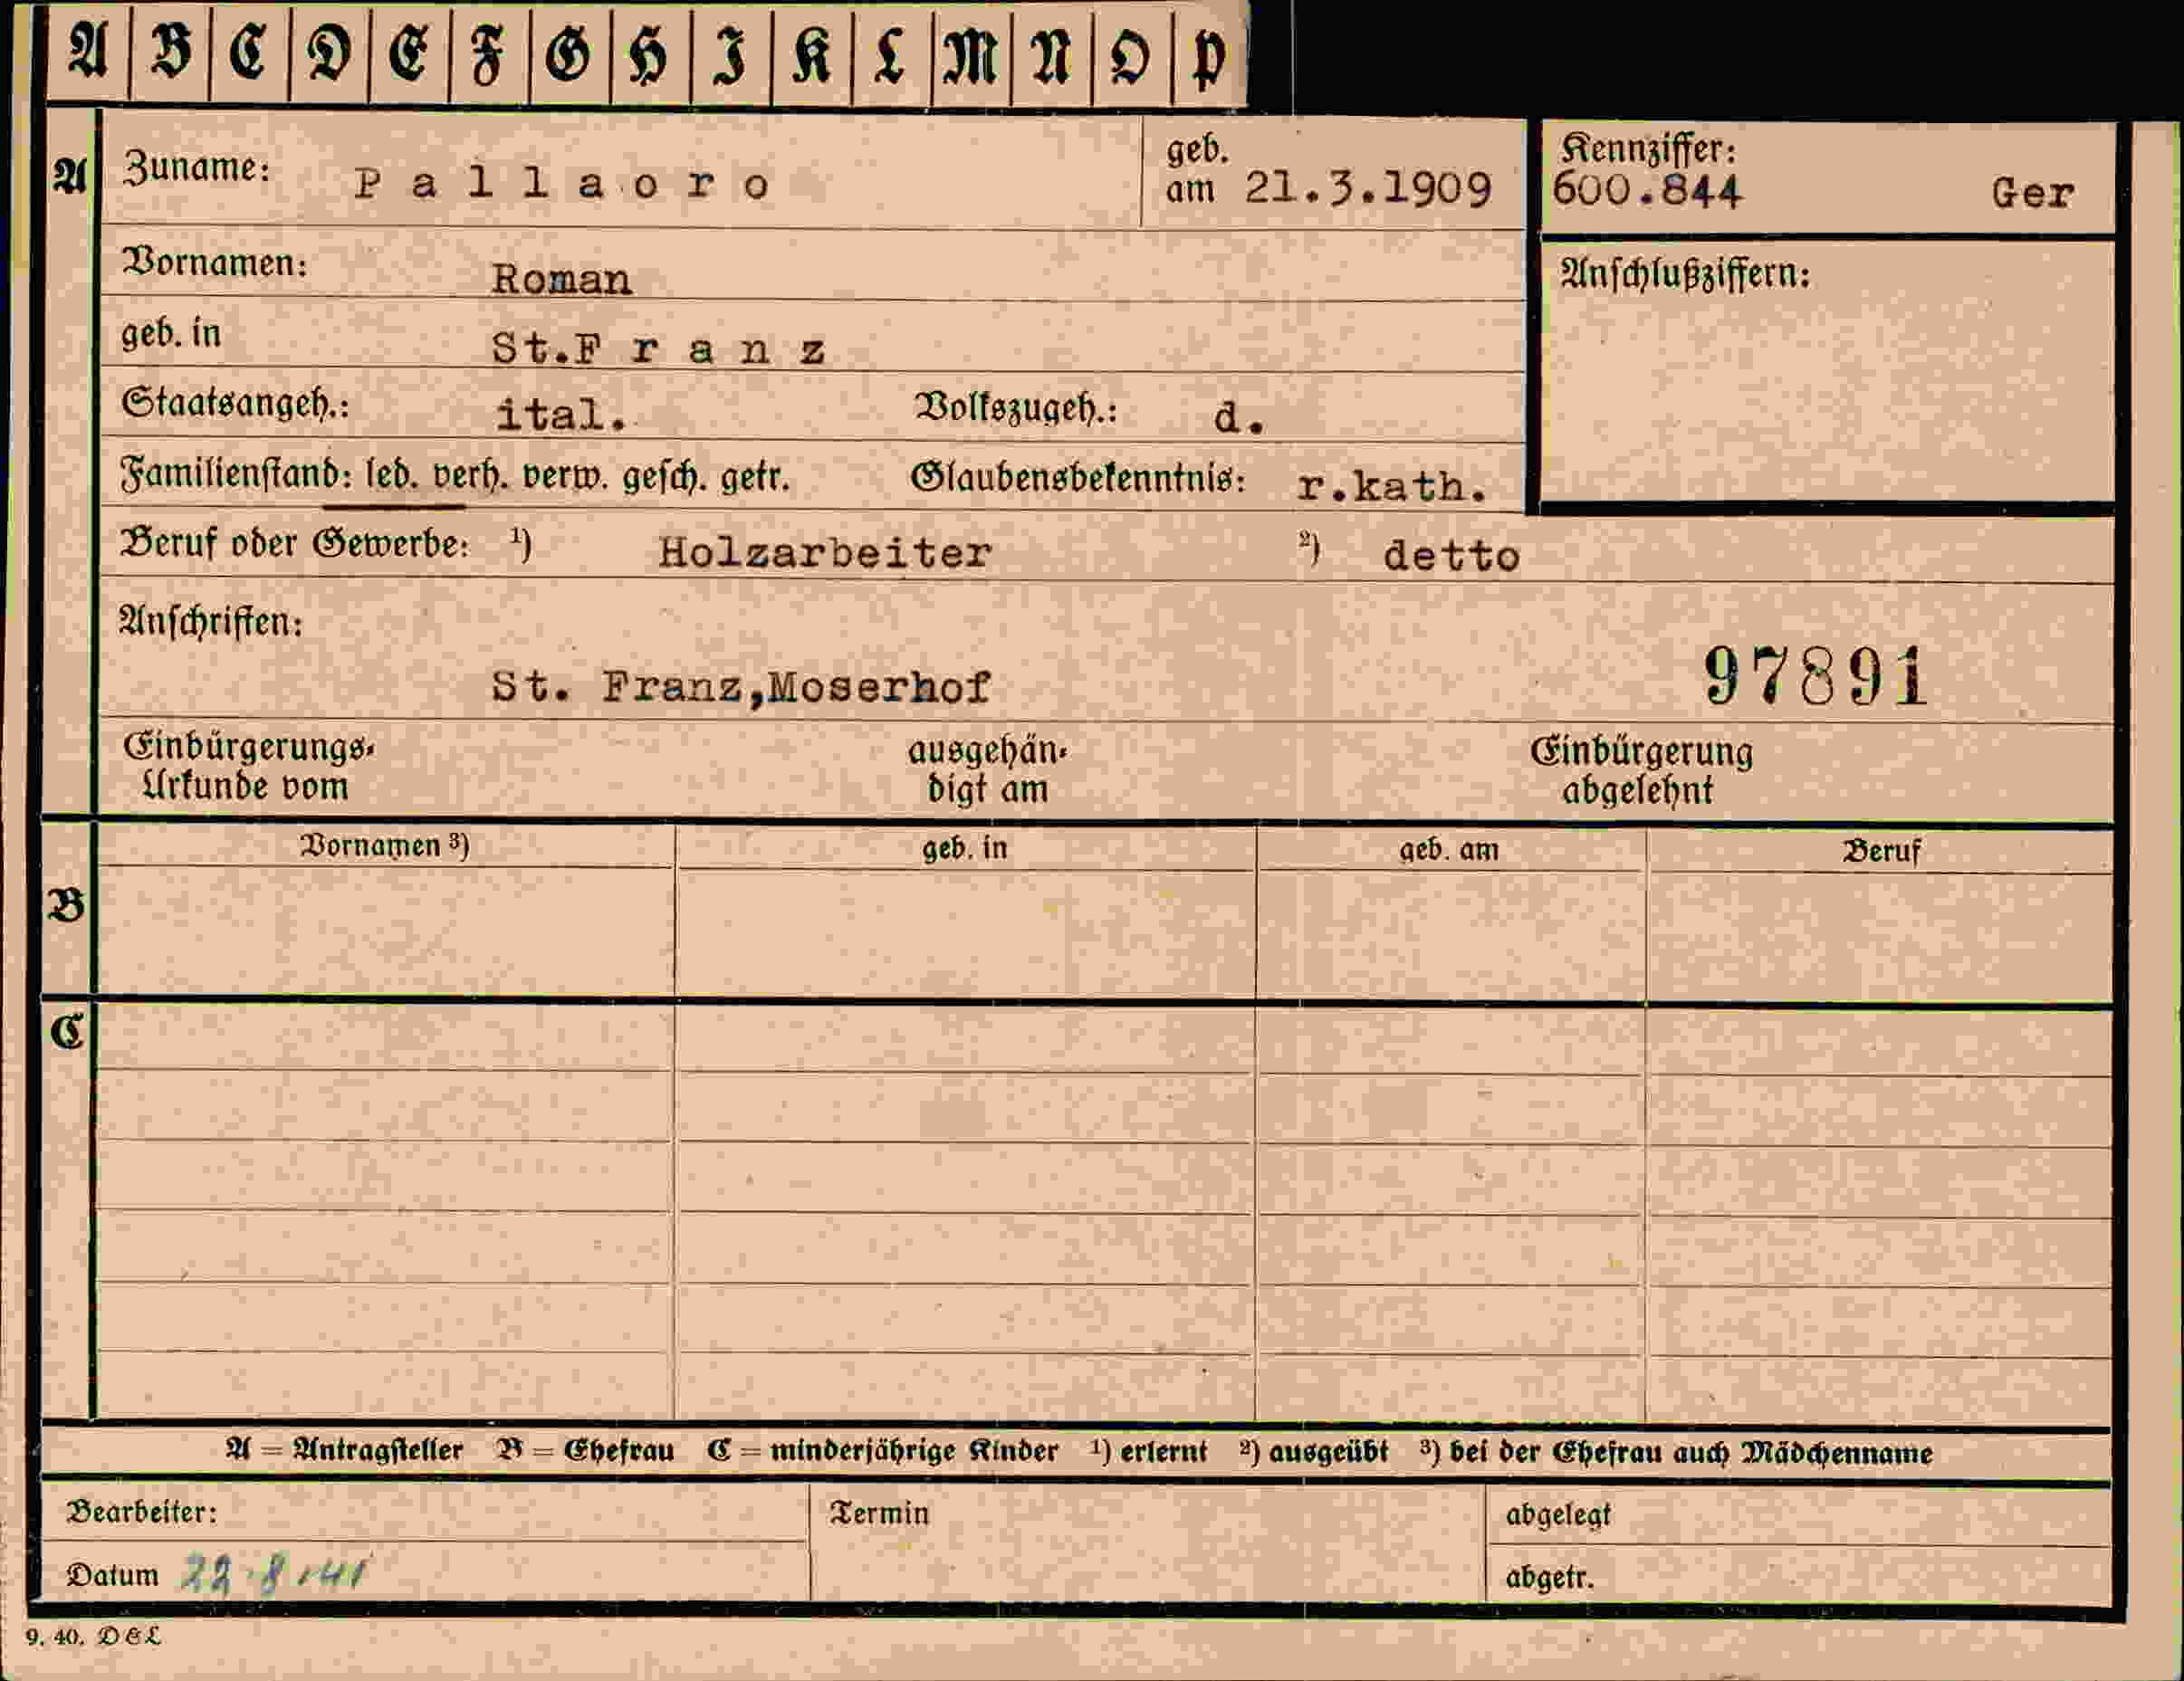 A B C D E F G H I K L M N O P
A Zuname: Pallaoro geb. am 21.3.1909 Kennziffer: 600.844 Ger
Vornamen: Roman Anschlußziffern:
geb. in St.Franz
Staatsangeh.: ital. Volkszugeh.: d.
Familienstand: led. verh. verw. gesch. getr. Glaubensbekenntnis: r.kath.
Beruf oder Gewerbe: ¹) Holzarbeiter ²) detto
Anschriften:
St. Franz,Moserhof 97891
Einbürgerungs- ausgehän- Einbürgerung
Urkunde vom digt am abgelehnt
Vornamen ³) geb. in geb. am Beruf
B
C
A = Antragsteller B = Ehefrau C = minderjährige Kinder ¹) erlernt ²) ausgeübt ³) bei der Ehefrau auch Mädchenname
Bearbeiter: Termin abgelegt
Datum 22.8.41 abgetr.
9. 40. D&L